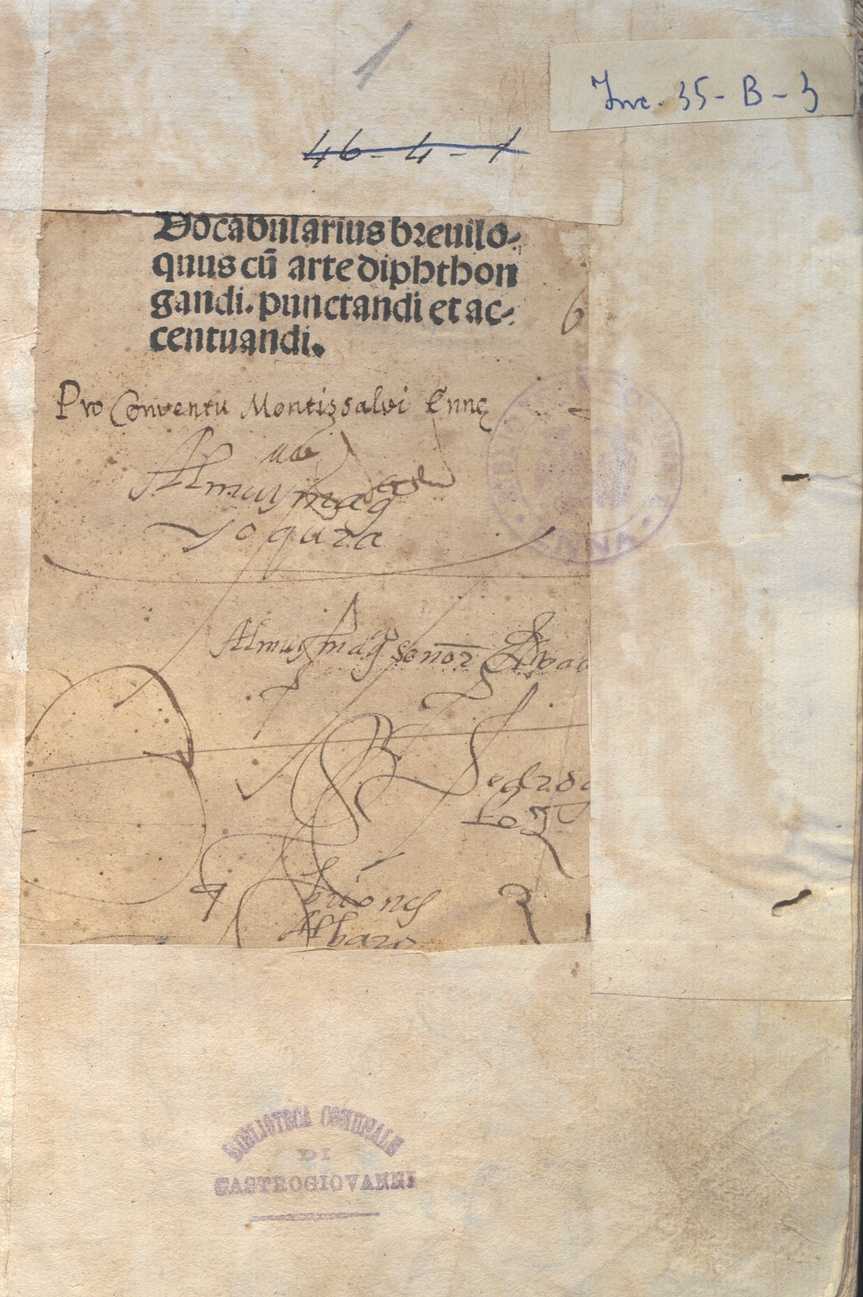 1
Inc. 35-B-3
46-4-1
Vocabularius breuilo-
quus cū arte diphthon
gandi. punctandi et ac-
centuandi.
6
Pro Conventu Montissalvi Ennę
Almuy mag
BIBLIOTECA
ENNA
Almuy mag señor Alvar
Pedro
Briones
Albaro
BIBLIOTECA COMUNALE
DI
CASTROGIOVANNI